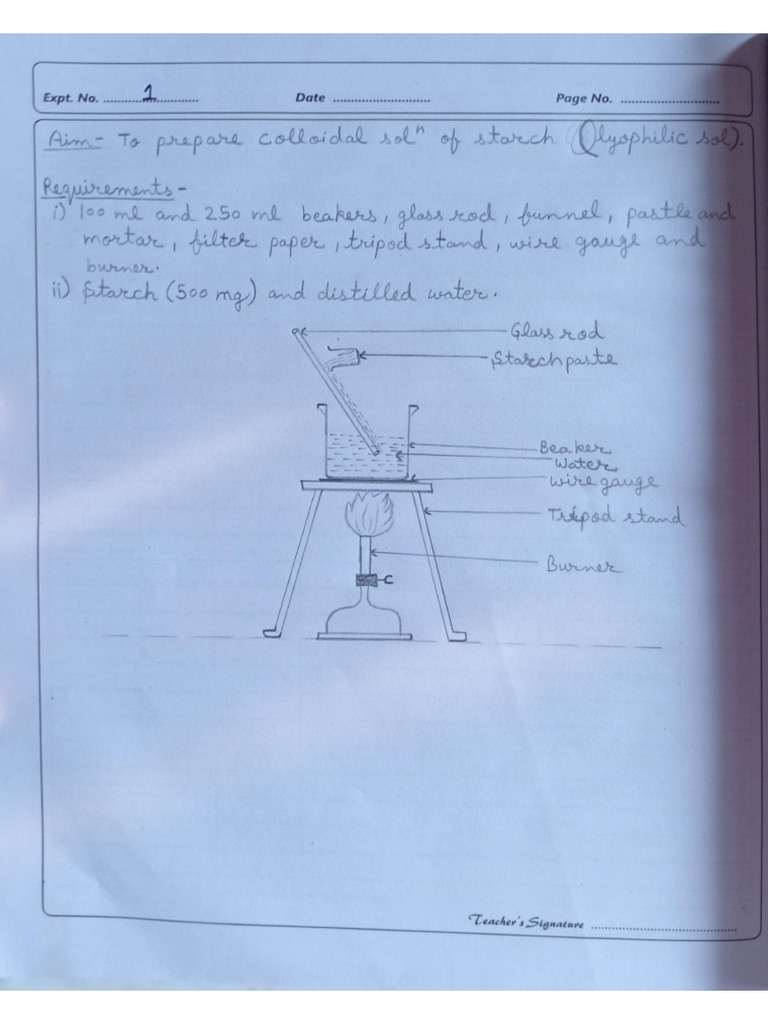 Expt. No. 1 Date Page No.
Aim- To prepare colloidal solⁿ of starch (lyophilic sol).
Requirements-
i) 100 ml and 250 ml beakers, glass rod, funnel, pastle and
mortar, filter paper, tripod stand, wire gauge and
burner.
ii) Starch (500 mg) and distilled water.
Glass rod
Starch paste
Beaker
Water
Wire gauge
Tripod stand
Burner
C
Teacher's Signature